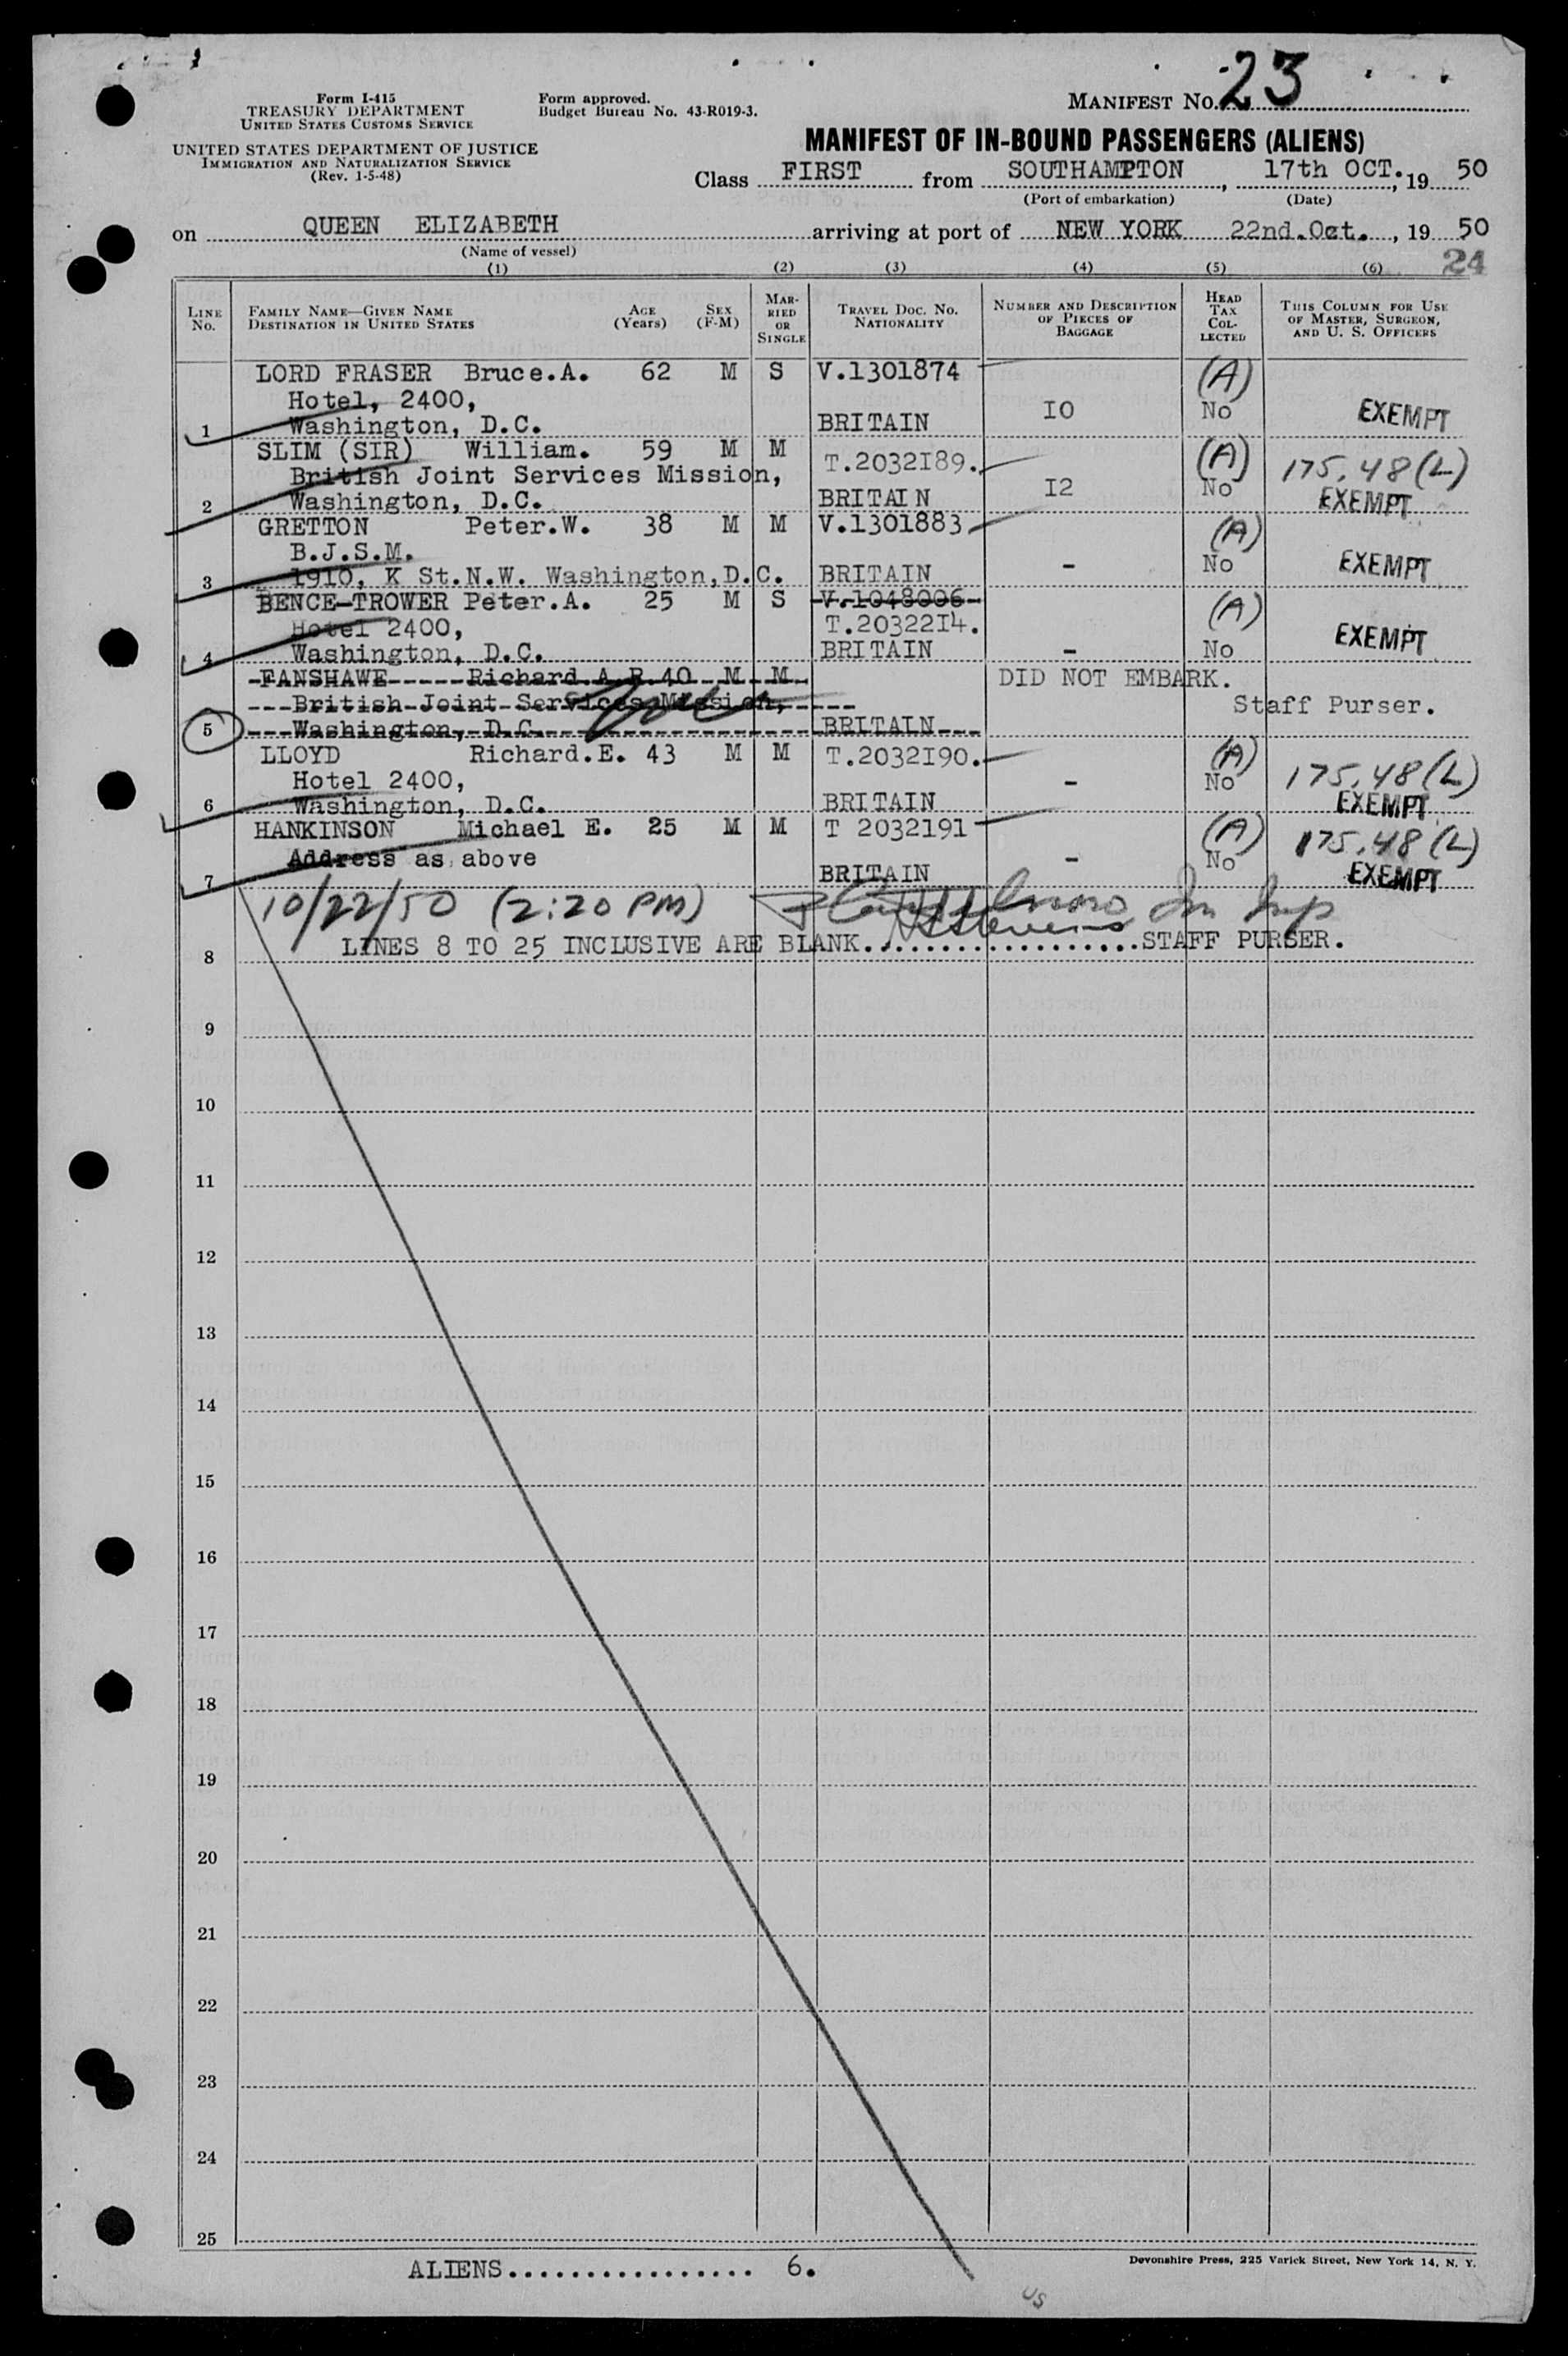 Form I-415
TREASURY DEPARTMENT
UNITED STATES CUSTOMS SERVICE
UNITED STATES DEPARTMENT OF JUSTICE
IMMIGRATION AND NATURALIZATION SERVICE
(Rev. 1-5-48)
Form approved.
Budget Bureau No. 43-R019-3.
MANIFEST No. 23
MANIFEST OF IN-BOUND PASSENGERS (ALIENS)
Class FIRST from SOUTHAMPTON, 17th OCT., 19 50
(Port of embarkation) (Date)
on QUEEN ELIZABETH arriving at port of NEW YORK 22nd.Oct., 19 50
(Name of vessel)
(1) (2) (3) (4) (5) (6) 24
LINE No. FAMILY NAME—GIVEN NAME DESTINATION IN UNITED STATES AGE (Years) SEX (F-M) MARRIED OR SINGLE TRAVEL DOC. NO. NATIONALITY NUMBER AND DESCRIPTION OF PIECES OF BAGGAGE HEAD TAX COLLECTED THIS COLUMN FOR USE OF MASTER, SURGEON, AND U. S. OFFICERS
LORD FRASER Bruce.A. 62 M S V.1301874 (A)
Hotel, 2400, I0 No EXEMPT
1 Washington, D.C. BRITAIN
SLIM (SIR) William. 59 M M T.2032I89. (A) 175.48 (L)
British Joint Services Mission, I2 No
2 Washington, D.C. BRITAIN EXEMPT
GRETTON Peter.W. 38 M M V.1301883 (A)
B.J.S.M. - No EXEMPT
3 1910, K St.N.W. Washington,D.C. BRITAIN
BENCE-TROWER Peter.A. 25 M S V.1048006 (A)
Hotel 2400, T.2032214. EXEMPT
4 Washington, D.C. BRITAIN - No
FANSHAWE Richard A.R. 40 M M DID NOT EMBARK.
British Joint Services Mission, Staff Purser.
5 Washington, D.C. BRITAIN
LLOYD Richard.E. 43 M M T.2032I90. (A) 175.48 (L)
Hotel 2400, - No
6 Washington, D.C. BRITAIN EXEMPT
HANKINSON Michael E. 25 M M T 2032191 (A) 175.48 (L)
Address as above - No
7 BRITAIN EXEMPT
10/22/50 (2:20 PM)
LINES 8 TO 25 INCLUSIVE ARE BLANK..................STAFF PURSER.
8
9
10
11
12
13
14
15
16
17
18
19
20
21
22
23
24
25
Devonshire Press, 225 Varick Street, New York 14, N. Y.
ALIENS................ 6.